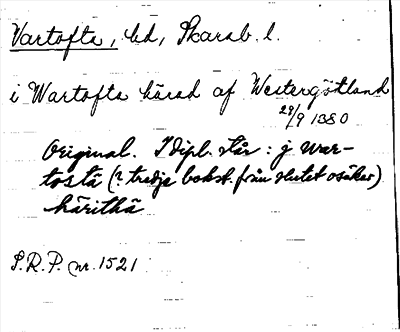 Vartofta, hd, Skarab. l.
i Wartofta härad af Westergötland
29/9 1380
Original. I dipl. står: j war-
tostä (? tredje bokst. från slutet osäker)
härithä
S.R.P. nr. 1521